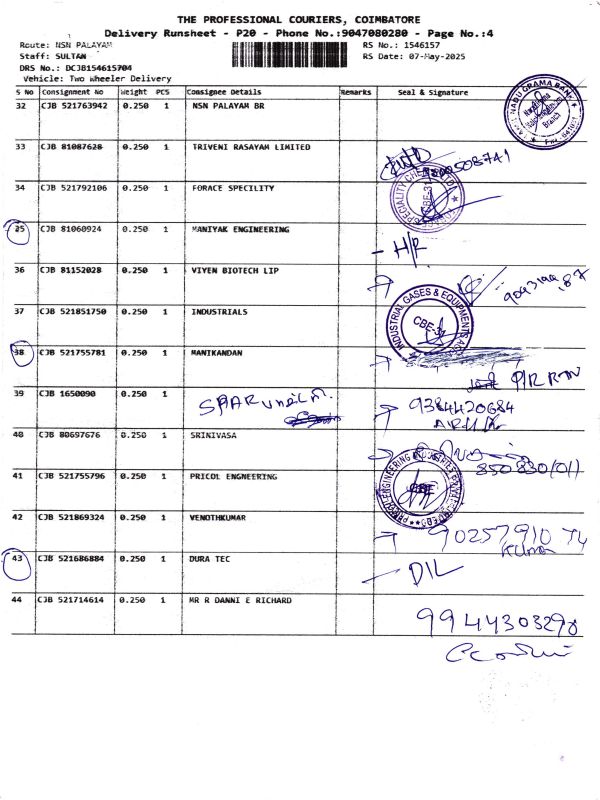 THE PROFESSIONAL COURIERS, COIMBATORE
Delivery Runsheet - P20 - Phone No.:9047080280 - Page No.:4
Route: NSN PALAYAM
RS No.: 1546157
Staff: SULTAN
RS Date: 07-May-2025
DRS No.: DCJB154615704
Vehicle: Two Wheeler Delivery
S No Consignment No Weight PCS Consignee Details Remarks Seal & Signature
32 CJB 521763942 0.250 1 NSN PALAYAM BR
33 CJB 81087628 0.250 1 TRIVENI RASAYAM LIMITED
34 CJB 521792106 0.250 1 FORACE SPECILITY
35 CJB 81060924 0.250 1 MANIYAK ENGINEERING
36 CJB 81152028 0.250 1 VIYEN BIOTECH LIP
37 CJB 521851750 0.250 1 INDUSTRIALS
INDUSTRIAL GASES & EQUIPMENTS
CBE-31
38 CJB 521755781 0.250 1 MANIKANDAN
39 CJB 1650090 0.250 1
9384420684
40 CJB 80697676 0.250 1 SRINIVASA
41 CJB 521755796 0.250 1 PRICOL ENGNEERING
42 CJB 521869324 0.250 1 VENOTHKUMAR
Kumar
43 CJB 521686884 0.250 1 DURA TEC
- D/L
44 CJB 521714614 0.250 1 MR R DANNI E RICHARD
9944303290